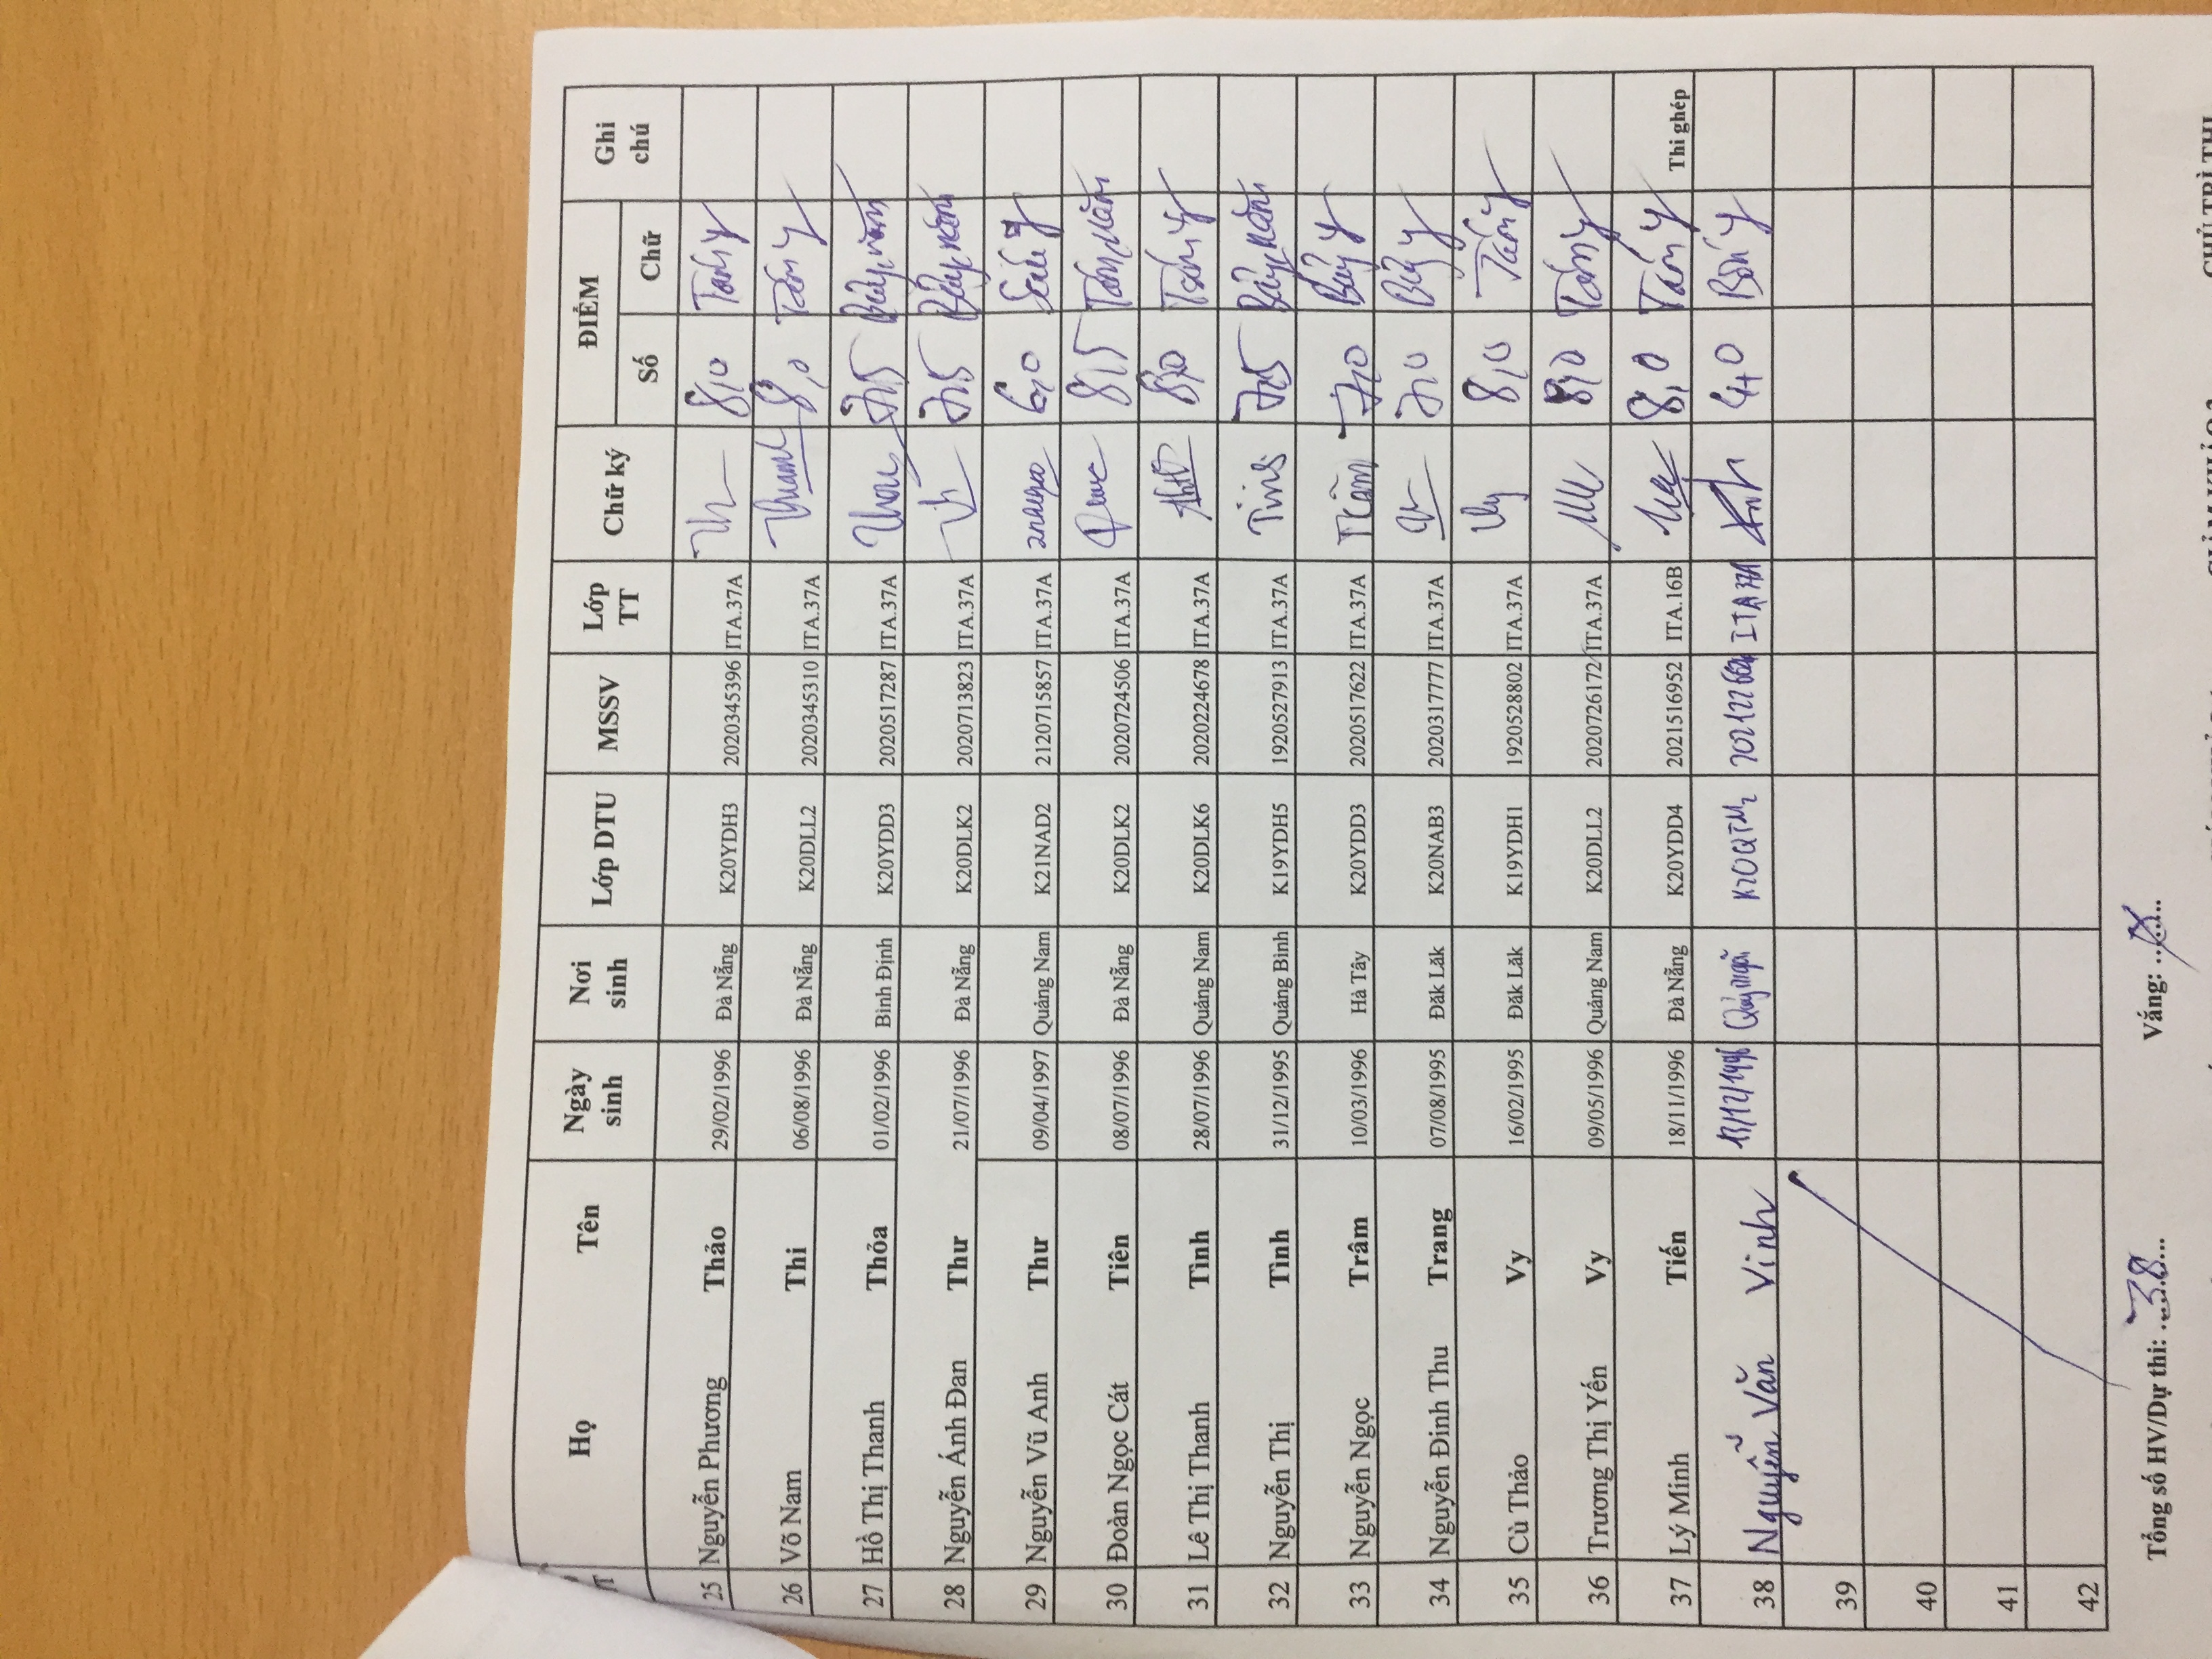 Họ Tên Ngày sinh Nơi sinh Lớp DTU MSSV Lớp TT Chữ ký ĐIỂM Ghi chú
Số Chữ
25 Nguyễn Phương Thảo 29/02/1996 Đà Nẵng K20YDH3 2020345396 ITA.37A 8,0 Tám
26 Võ Nam Thi 06/08/1996 Đà Nẵng K20DLL2 2020345310 ITA.37A 8,0 Tám
27 Hồ Thị Thanh Thỏa 01/02/1996 Bình Định K20YDD3 2020517287 ITA.37A 7,5 Bảy, năm
28 Nguyễn Ánh Đan Thư 21/07/1996 Đà Nẵng K20DLK2 2020713823 ITA.37A 7,5 Bảy, năm
29 Nguyễn Vũ Anh Thư 09/04/1997 Quảng Nam K21NAD2 2120715857 ITA.37A 6,0 Sáu
30 Đoàn Ngọc Cát Tiên 08/07/1996 Đà Nẵng K20DLK2 2020724506 ITA.37A 8,5 Tám, năm
31 Lê Thị Thanh Tình 28/07/1996 Quảng Nam K20DLK6 2020224678 ITA.37A 8,0 Tám
32 Nguyễn Thị Tình 31/12/1995 Quảng Bình K19YDH5 1920527913 ITA.37A Tình 7,5 Bảy, năm
33 Nguyễn Ngọc Trâm 10/03/1996 Hà Tây K20YDD3 2020517622 ITA.37A Trâm 7,0 Bảy
34 Nguyễn Đinh Thu Trang 07/08/1995 Đăk Lăk K20NAB3 2020317777 ITA.37A 7,0 Bảy
35 Cù Thảo Vy 16/02/1995 Đăk Lăk K19YDH1 1920528802 ITA.37A Vy 8,0 Tám
36 Trương Thị Yến Vy 09/05/1996 Quảng Nam K20DLL2 2020726172 ITA.37A 8,0 Tám
37 Lý Minh Tiến 18/11/1996 Đà Nẵng K20YDD4 2021516952 ITA.16B 8,0 Tám Thi ghép
38 Nguyễn Văn Vinh Quảng Ngãi ITA37A 4,0 Bốn
39
40
41
42
Tổng số HV/Dự thi: 38 Vắng:
CHỦ TRÌ THI